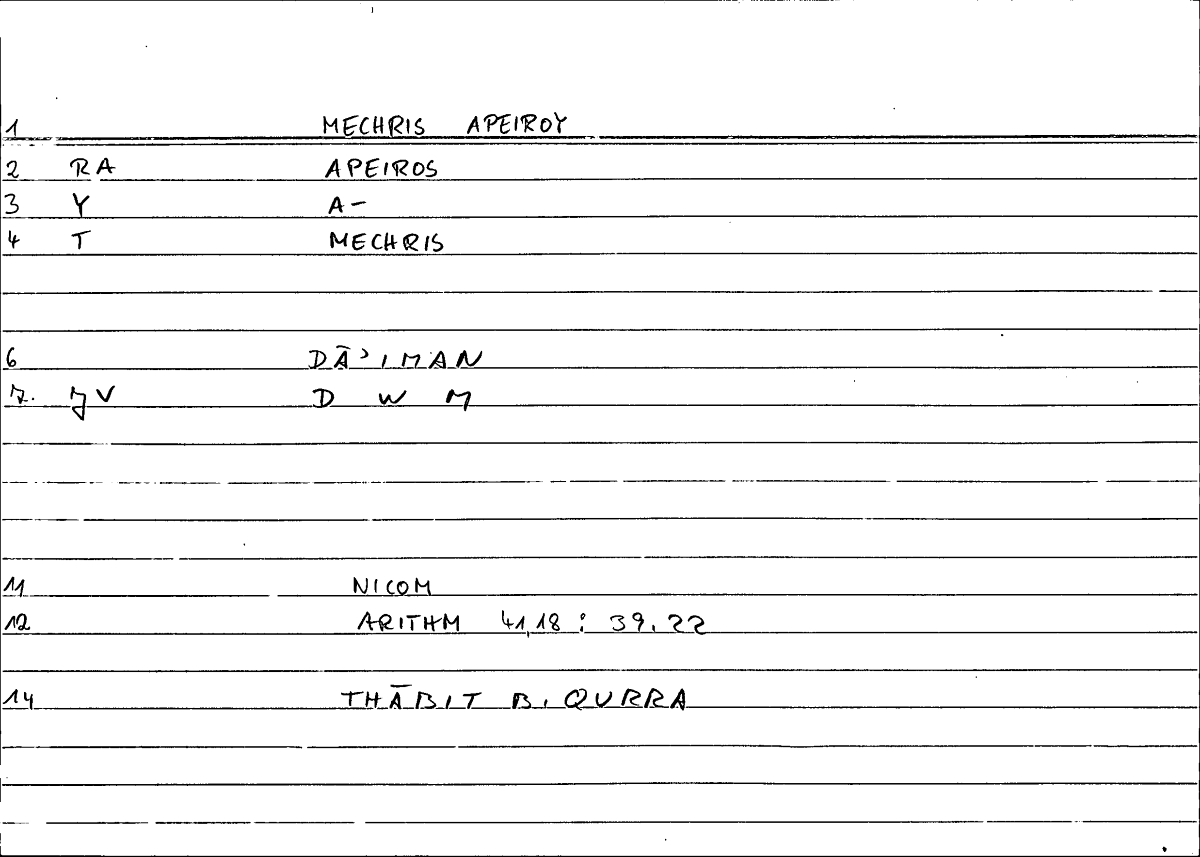 1 MECHRIS APEIROY
2 RA APEIROS
3 Y A-
4 T MECHRIS
6 DĀʾIMAN
7. JV D W M
11 NICOM
12 ARITHM 41,18 : 39.22
14 THĀBIT B. QURRA